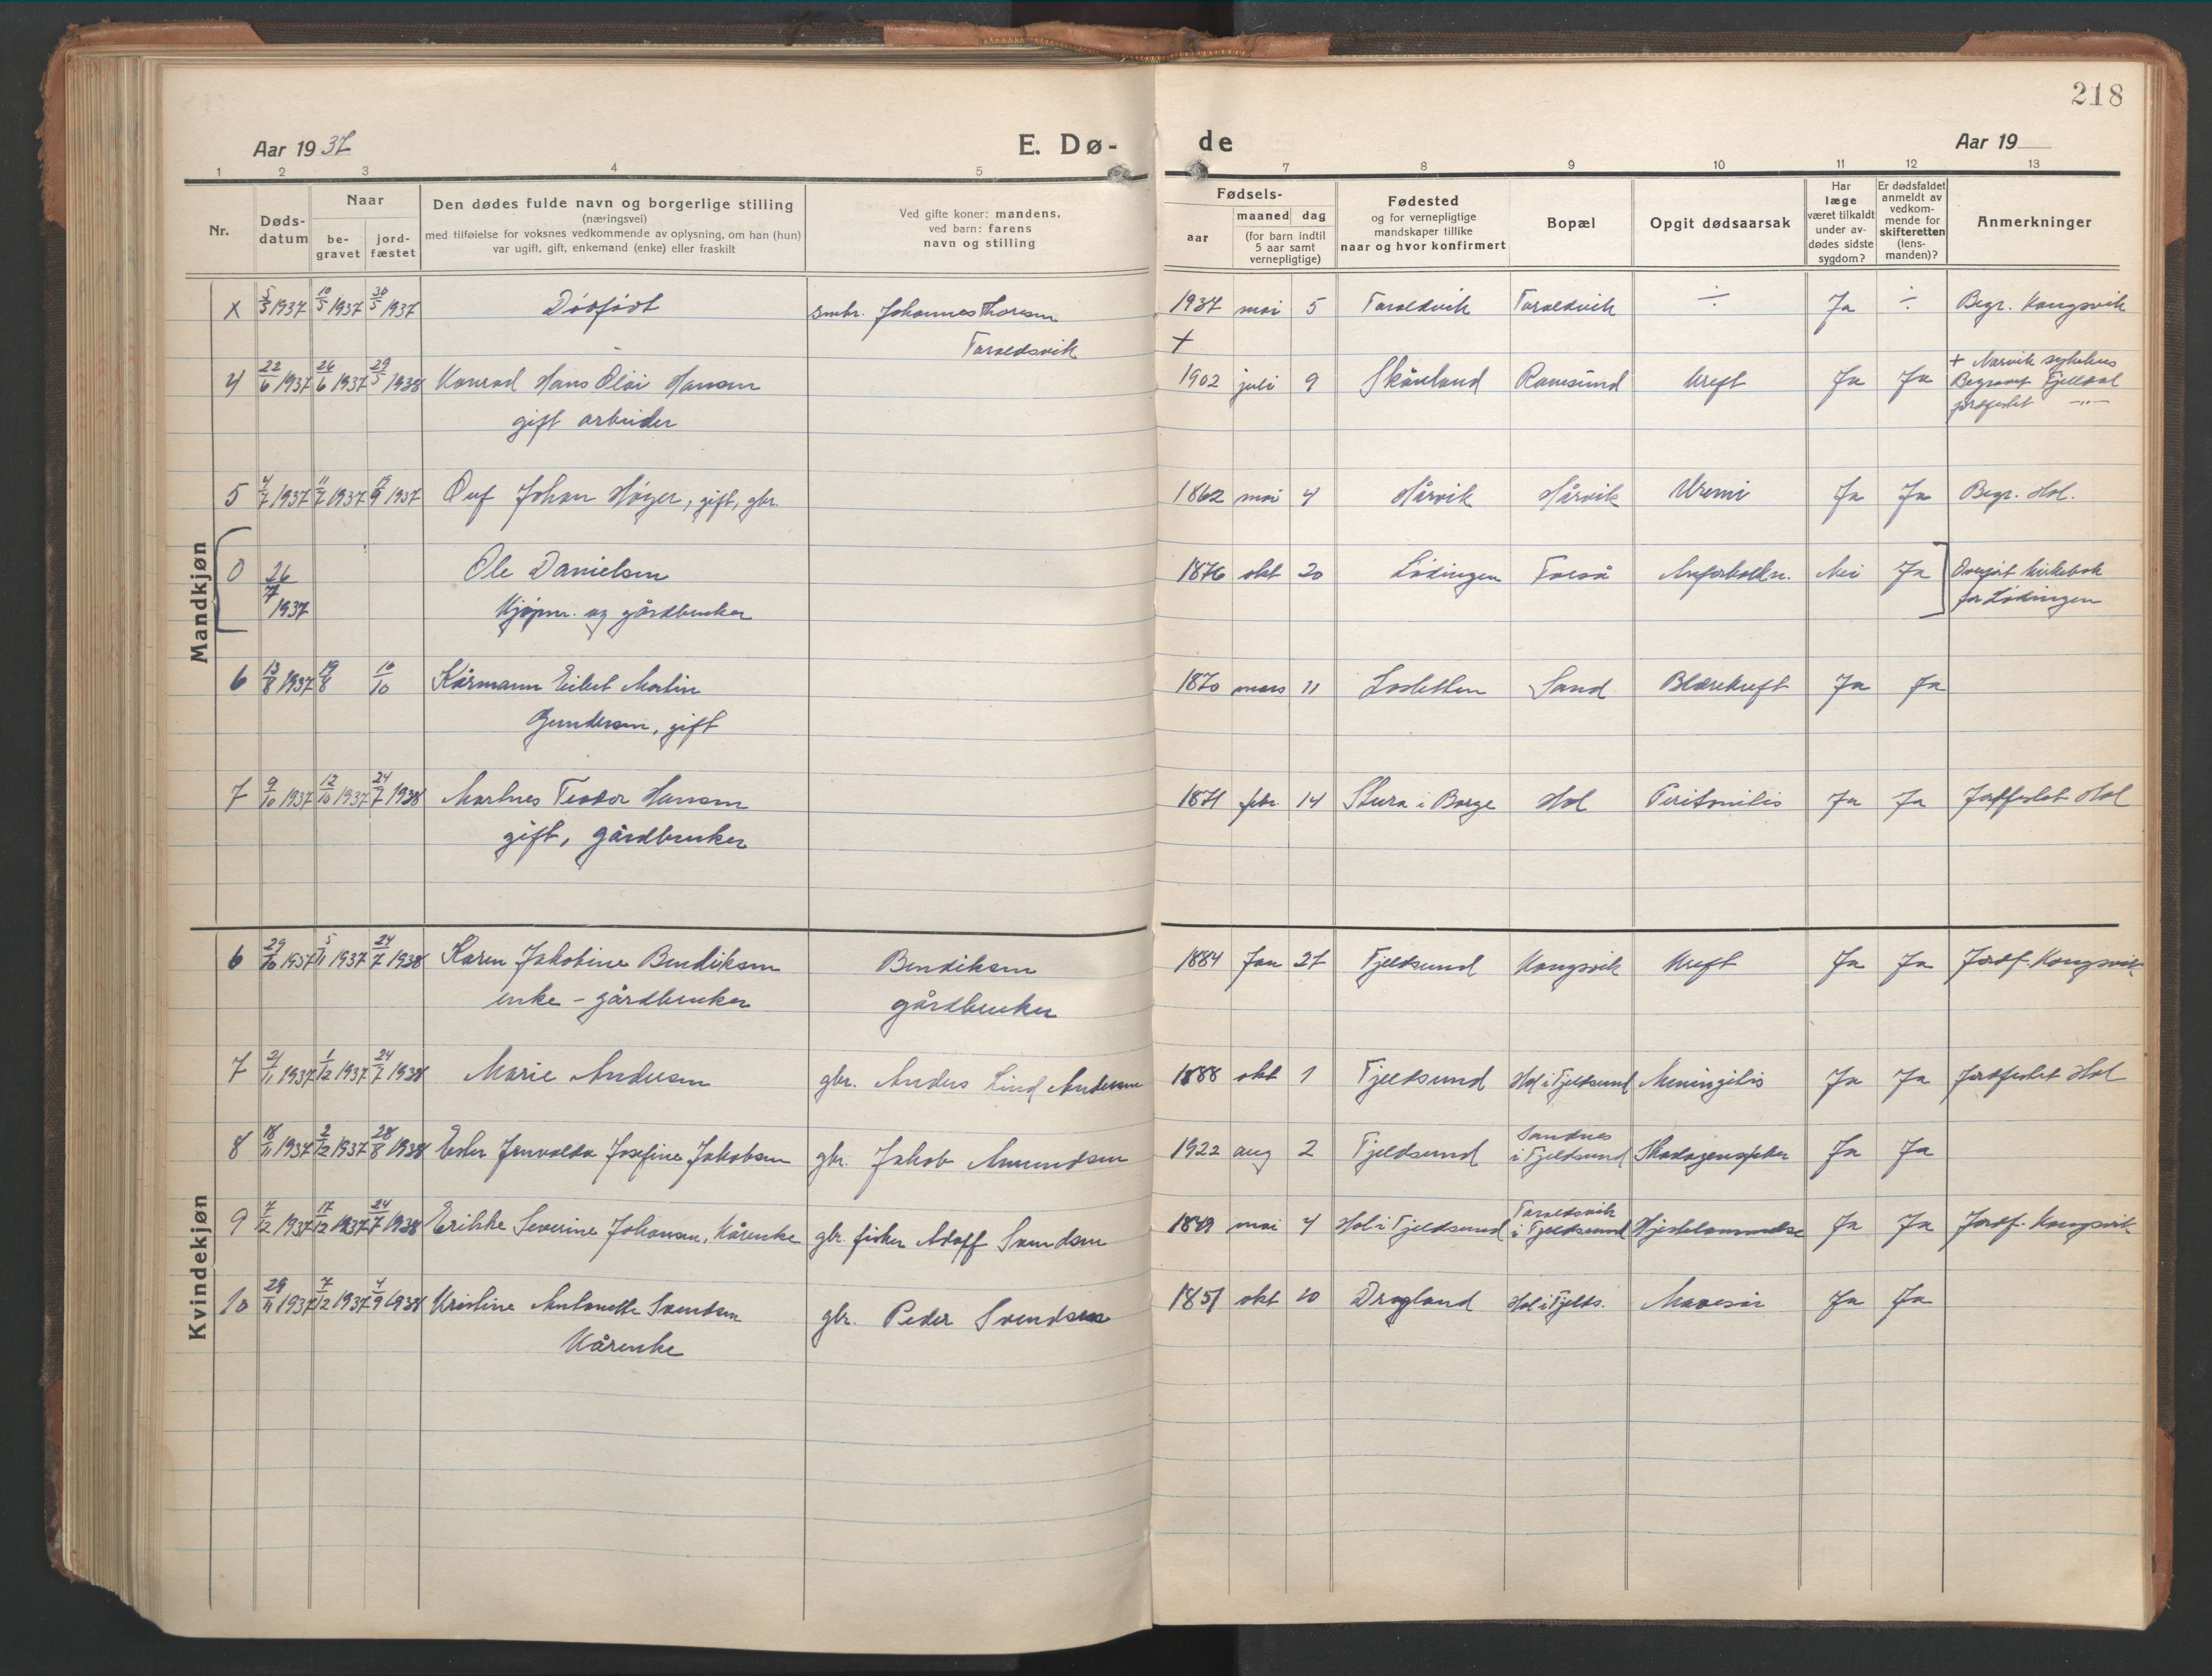 218
Aar 1937
E. Dø-
de
Aar 19
1 2 3 4 5 7 8 9 10 11 12 13
Nr.
Døds-
datum
Naar
be-
gravet
jord-
fæstet
Den dødes fulde navn og borgerlige stilling
(næringsvei)
med tilføielse for voksnes vedkommende av oplysning, om han (hun)
var ugift, gift, enkemand (enke) eller fraskilt
Ved gifte koner: mandens,
ved barn: farens
navn og stilling
Fødsels-
aar
maaned dag
(for barn indtil
5 aar samt
vernepligtige)
Fødested
og for vernepligtige
mandskaper tillike
naar og hvor konfirmert
Bopæl
Opgit dødsaarsak
Har
læge
været tilkaldt
under av-
dødes sidste
sygdom?
Er dødsfaldet
anmeldt av
vedkom-
mende for
skifteretten
(lens-
manden)?
Anmerkninger
Mandkjøn
x 5/5 1937 10/5 1937 30/5 1937 Dødfødt smbr. Johannes Thoresen 1937 mai 5 Taraldvik Taraldvik ÷ Ja ÷ Begr. Kongsvik
Taraldsvik +
4 22/6 1937 26/6 1937 29/5 1938 Konrad Hans Olai Hansen 1902 juli 9 Skånland Ramsund Kreft Ja Ja + Narvik sykehus
Begravet Fjelldal
gift arbeider jordfestet -"-
5 4/7 1937 11/7 1937 1937 Johan Høyer, gift, gbr. 1862 mai 4 Hårvik Hårvik Uremi Ja Ja Begr. Hol.
0 26/7 1937 Ole Danielsen 1876 okt 20 Lødingen Nei Ja Overført kirkebok
Kjøpm. og gårdbruker for Lødingen
6 13/8 1937 19/8 10/10 Kårmann Eilert Martin 1870 mars 11 Sand Blærekreft Ja Ja
Gundersen, gift
7 9/10 1937 12/10 1937 24/7 1938 Martnes Teodor Hansen 1871 febr 14 Stura i Borge Hol Peritonitis Ja Ja Jordfestet Hol
gift, gårdbruker
Kvindekjøn
6 29/10 1937 5/11 1937 24/7 1938 Karen Jakobine Bendiksen Bendiksen 1884 Jan 27 Fjeldsund Kongsvik Kreft Ja Ja Jordf. Kongsvik
enke - gårdbruker gårdbruker
7 2/11 1937 1/12 1937 24/7 1938 Marie Andersen gbr. Anders Lind Andersen 1888 okt 1 Fjeldsund Hol i Fjeldsund Meningitis Ja Ja Jordfestet Hol
8 18/11 1937 2/12 1937 28/8 1938 Ester Josefine Jakobsen gbr. Jakob Amundsen 1922 aug 2 Fjeldsund Sandnes
i Fjeldsund Ja Ja
9 7/12 1937 17/12 1937 24/7 1938 Erikke Severine Johansen, kårenke gbr. fisker Adolf Svendsen 1849 mai 4 Hol i Fjeldsund Taraldsvik
i Fjeldsund Hjertelammelse Ja Ja Jordf. Kongsvik
10 29/11 1937 7/12 1937 4/9 1938 Kristine Antonette Svendsen gbr. Peder Svendsen 1851 okt 20 Dragland Hol i Fjelds. Mavesår Ja Ja
Kårenke